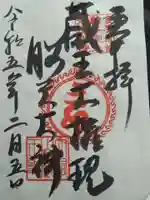 奉拝
蔵王大権現
勝手大神
令和五年二月五日